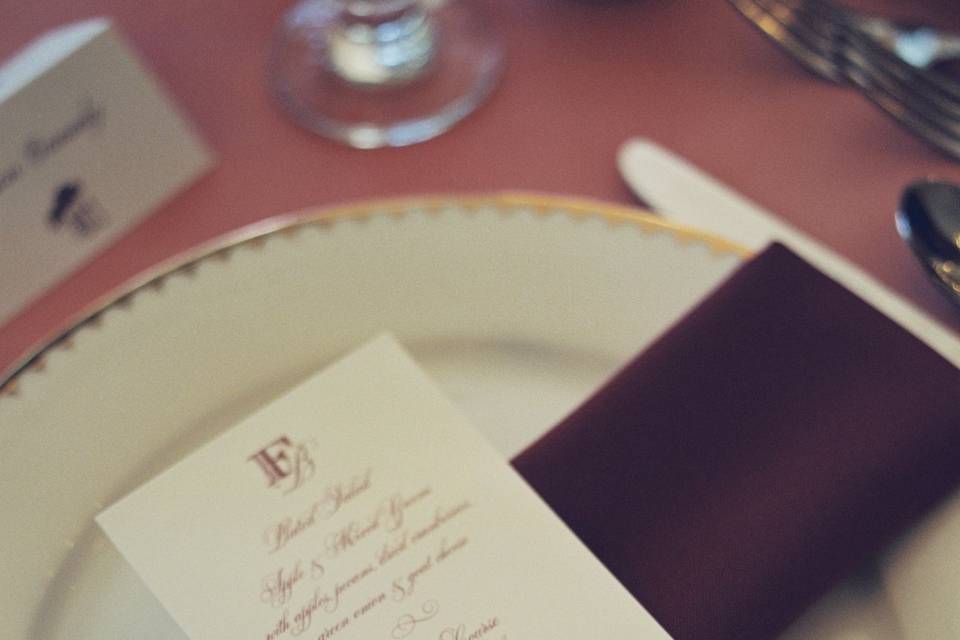 FB
Plated Salad
Apple & Mixed Greens
with apples, pecans, dried cranberries,
green onion & goat cheese
Course